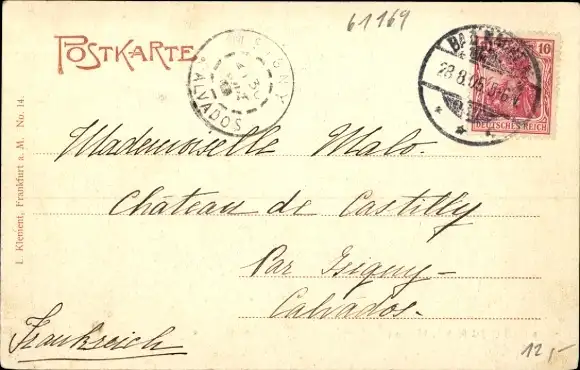 61169
POSTKARTE
ISIGNY
CALVADOS
BAD
28.8.05
10
DEUTSCHES REICH
I. Klement, Frankfurt a. M. No. 14.
Mademoiselle Malo.
Château de Castilly
Par Isigny-
Calvados.
Frankreich
12,-